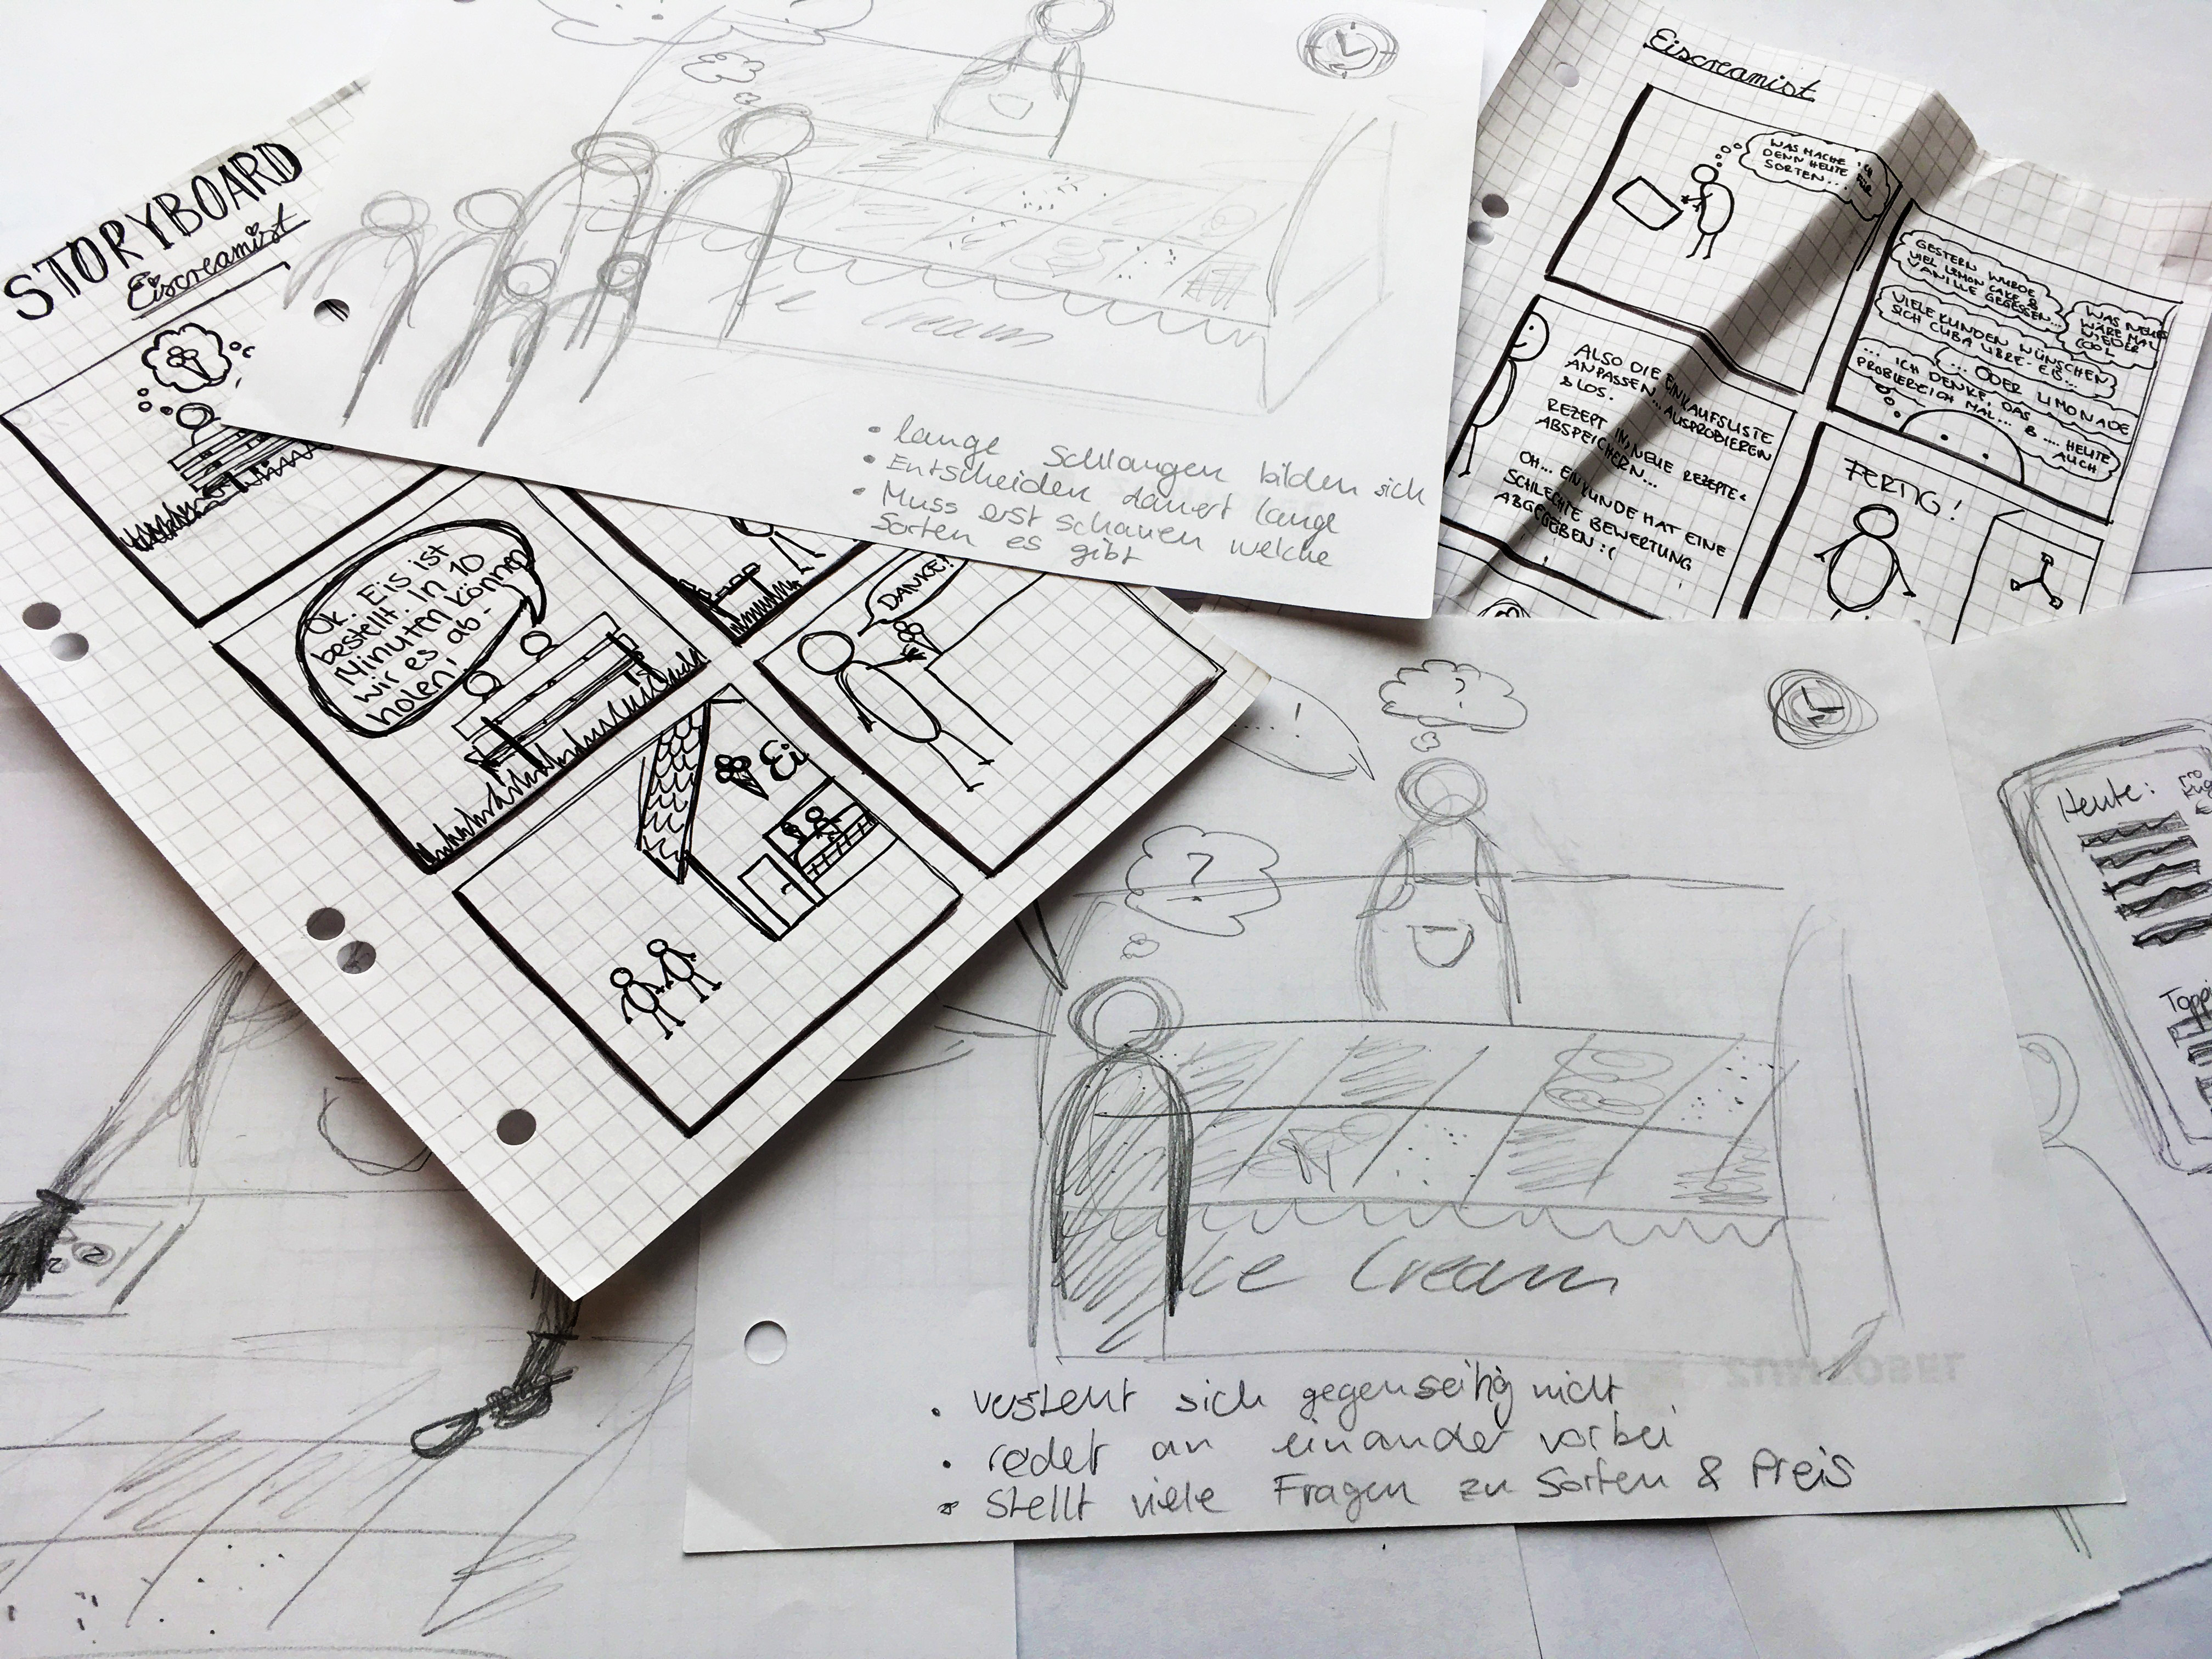 STORYBOARD
Eiscreamist
Ok. Eis ist
bestellt. In 10
Minuten können
wir es ab-
holen!
DANKE!
Ei
Ice Cream
• lange Schlangen bilden sich
• Entscheiden dauert lange
• Muss erst schauen welche
Sorten es gibt
Eiscreamist
WAS MACHE ICH
DENN HEUTE FÜR
SORTEN...
GESTERN WURDE
VIEL LEMON CAKE &
VANILLE GEGESSEN...
WAS NEUES
WÄRE MAL
WIEDER
COOL
VIELE KUNDEN WÜNSCHEN
SICH CUBA LIBRE-EIS...
... ODER LIMONADE
... ICH DENKE, DAS
PROBIERE ICH MAL... & .... HEUTE
AUCH
ALSO DIE EINKAUFSLISTE
ANPASSEN... AUSPROBIEREN
& LOS.
REZEPT IN „NEUE REZEPTE“
ABSPEICHERN...
OH... EIN KUNDE HAT EINE
SCHLECHTE BEWERTUNG
ABGEGEBEN :(
FERTIG!
.....!
?
?
Ice Cream
• versteht sich gegenseitig nicht
• redet an einander vorbei
• stellt viele Fragen zu Sorten & Preis
Heute:
pro
Toppi